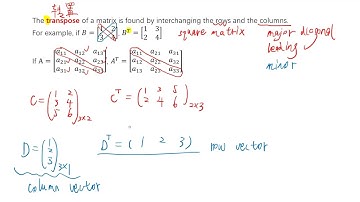 转置
The transpose of a matrix is found by interchanging the rows and the columns.
For example, if B = [1 2; 3 4], Bᵀ = [1 3; 2 4] square matrix major diagonal
leading
minor
If A = [a₁₁ a₁₂ a₁₃; a₂₁ a₂₂ a₂₃; a₃₁ a₃₂ a₃₃], Aᵀ = [a₁₁ a₂₁ a₃₁; a₁₂ a₂₂ a₃₂; a₁₃ a₂₃ a₃₃]
C = (1 2; 3 4; 5 6) 3×2 Cᵀ = (1 3 5; 2 4 6) 2×3
D = (1; 2; 3) 3×1 Dᵀ = (1 2 3) row vector
column vector